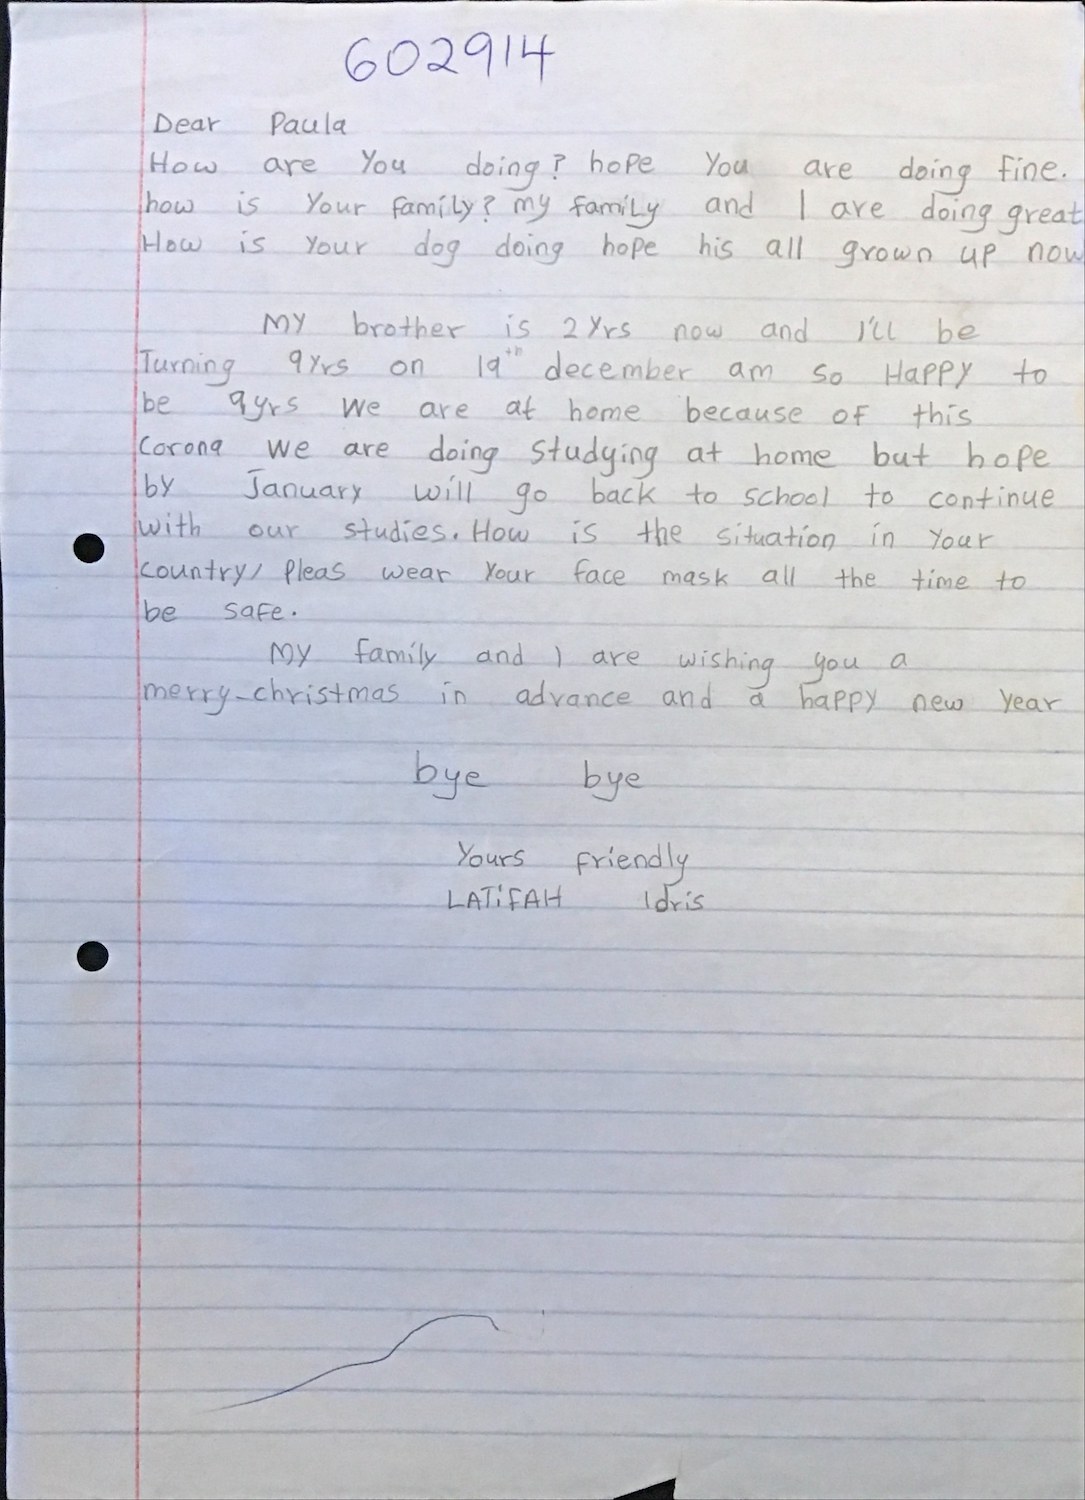 602914
Dear Paula
How are You doing? hope You are doing fine.
how is Your family? my family and I are doing great
How is Your dog doing hope his all grown up now
My brother is 2 Yrs now and I'll be
Turning 9Yrs on 19th december am so Happy to
be 9yrs We are at home because of this
Corona we are doing studying at home but hope
by January will go back to school to continue
with our studies. How is the situation in Your
country/ Pleas wear Your face mask all the time to
be safe.
My family and I are wishing you a
merry-christmas in advance and a happy new Year
bye bye
Yours friendly
LATiFAH Idris